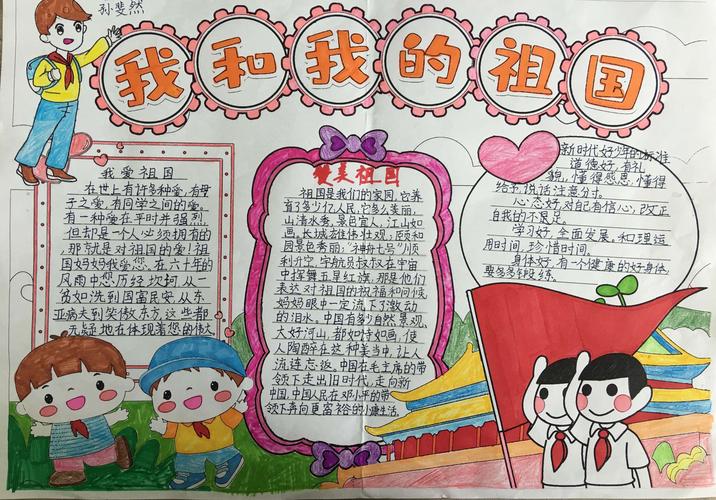 孙斐然
我和我的祖国
我爱祖国
在世上有许多种爱,有母
子之爱,有同学之间的爱。
有一种爱在平时并强烈。
但却是一个人必须拥有的
,那就是对祖国的爱!祖
国妈妈我爱您。在六十年的
风雨中您历经坎坷从一
贫如洗到国富民安,从东
亚病夫到笑傲东方,这些都
无疑地在体现着您的伟大
赞美祖国
祖国是我们的家园,它养
育了多少代人民,它多么美丽,
山清水秀,景色宜人,江山如
画。长城雄伟壮观,颐和
园景色秀丽;"神舟七号"顺
利升空,宇航员叔叔在宇宙
中挥舞五星红旗,那是他们
表达对祖国的祝福和问候
妈妈眼中一定流下了激动
的泪水。中国有多少自然景观,
大好河山,都如诗如画,使
人陶醉在这种美当中,让人
流连忘返。中国在毛主席的带
领下走出旧时代,走向新
中国,中国人民在邓小平的带
领下奔向更富裕的小康生活。
新时代好少年的标准
道德好,有礼
貌,懂得感恩,懂得
给予,说话注意分寸。
心态好,对自己有信心,改正
自我的不足。
学习好,全面发展。和理运
用时间,珍惜时间。
身体好,有一个健康的好身体,
要多多锻练。